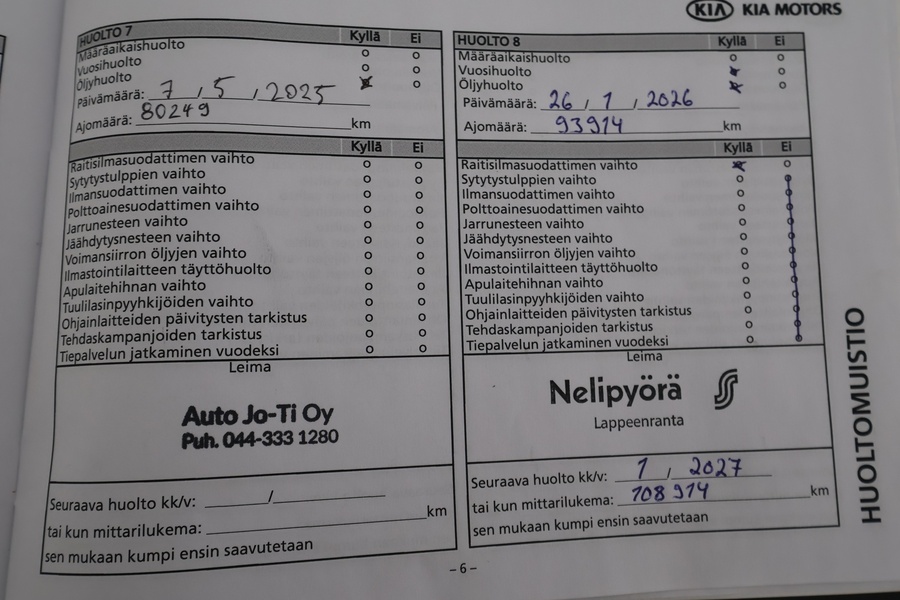 KIA KIA MOTORS
HUOLTO 7 Kyllä Ei
Määräaikaishuolto o o
Vuosihuolto o o
Öljyhuolto x o
Päivämäärä: 7 / 5 / 2025
Ajomäärä: 80249 km
Kyllä Ei
Raitisilmasuodattimen vaihto o o
Sytytystulppien vaihto o o
Ilmansuodattimen vaihto o o
Polttoainesuodattimen vaihto o o
Jarrunesteen vaihto o o
Jäähdytysnesteen vaihto o o
Voimansiirron öljyjen vaihto o o
Ilmastointilaitteen täyttöhuolto o o
Apulaitehihnan vaihto o o
Tuulilasinpyyhkijöiden vaihto o o
Ohjainlaitteiden päivitysten tarkistus o o
Tehdaskampanjoiden tarkistus o o
Tiepalvelun jatkaminen vuodeksi o o
Leima
Auto Jo-Ti Oy
Puh. 044-333 1280
Seuraava huolto kk/v: /
tai kun mittarilukema: km
sen mukaan kumpi ensin saavutetaan
HUOLTO 8 Kyllä Ei
Määräaikaishuolto o o
Vuosihuolto x o
Öljyhuolto x o
Päivämäärä: 26 / 1 / 2026
Ajomäärä: 93914 km
Kyllä Ei
Raitisilmasuodattimen vaihto x o
Sytytystulppien vaihto o o
Ilmansuodattimen vaihto o o
Polttoainesuodattimen vaihto o o
Jarrunesteen vaihto o o
Jäähdytysnesteen vaihto o o
Voimansiirron öljyjen vaihto o o
Ilmastointilaitteen täyttöhuolto o o
Apulaitehihnan vaihto o o
Tuulilasinpyyhkijöiden vaihto o o
Ohjainlaitteiden päivitysten tarkistus o o
Tehdaskampanjoiden tarkistus o o
Tiepalvelun jatkaminen vuodeksi o o
Leima
Nelipyörä
Lappeenranta
Seuraava huolto kk/v: 1 / 2027
tai kun mittarilukema: 108914 km
sen mukaan kumpi ensin saavutetaan
HUOLTOMUISTIO
– 6 –